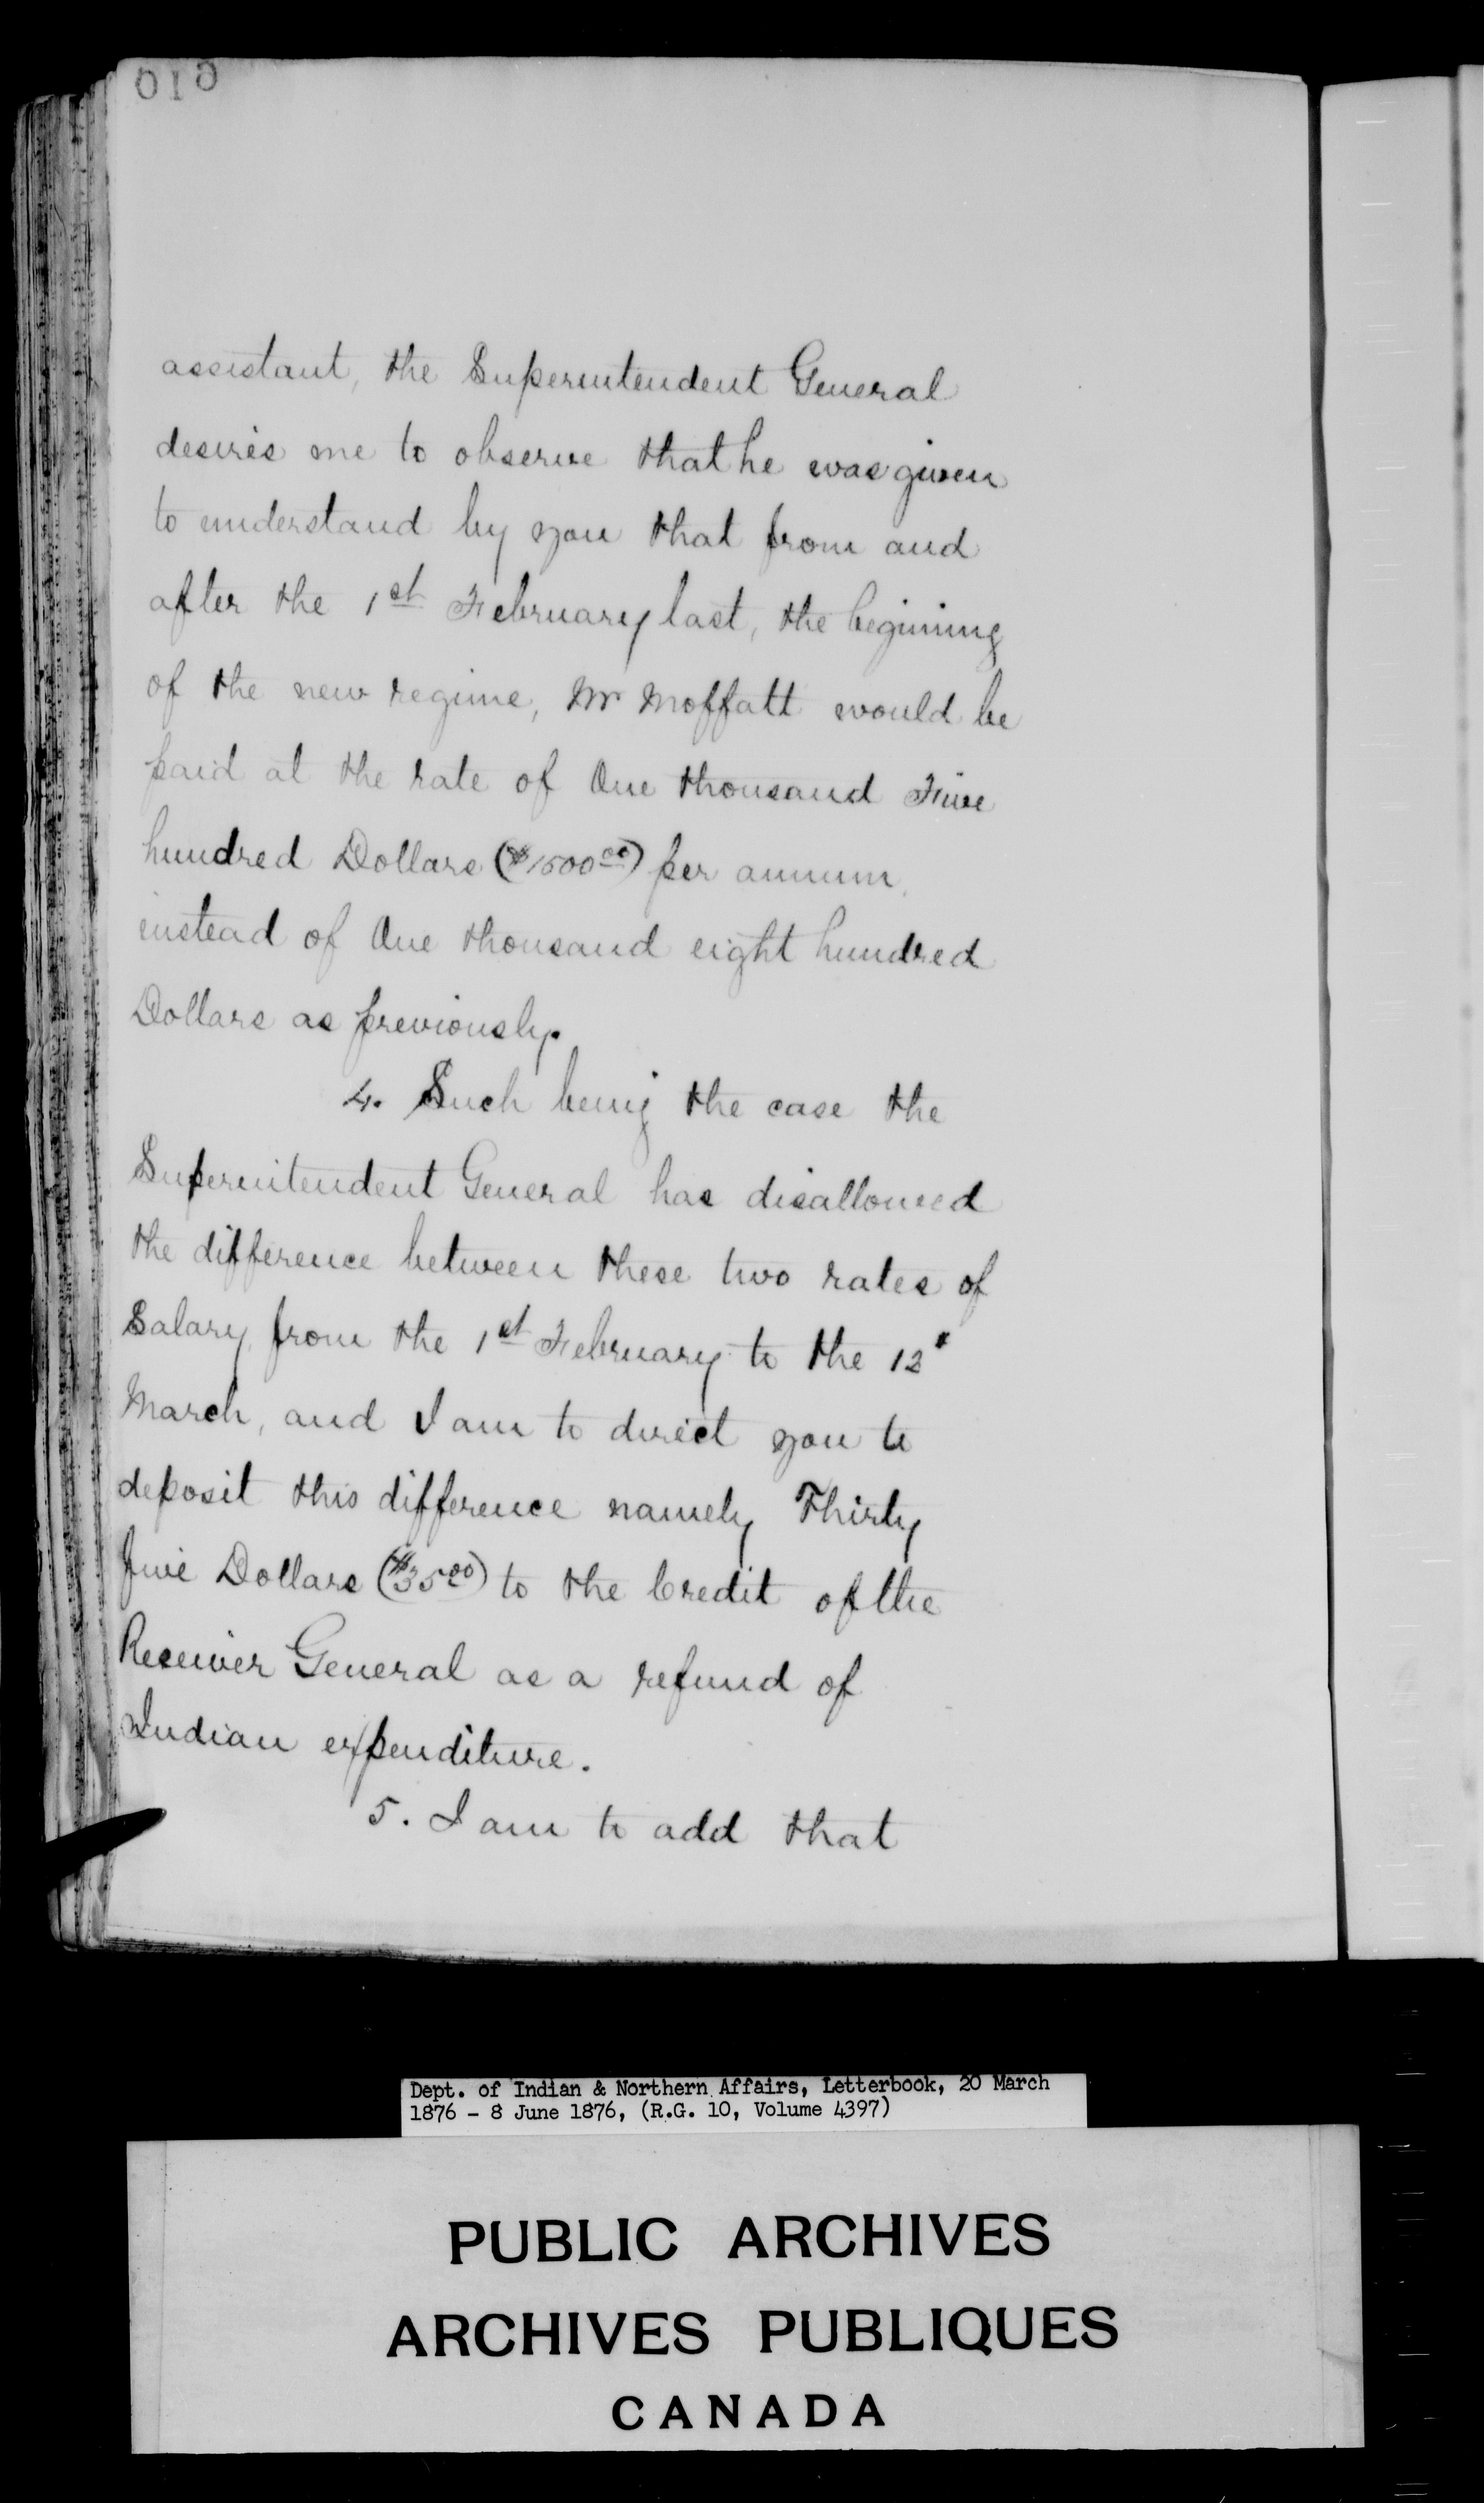 assistant, the Superintendent General
desires me to observe that he was given
to understand by you that from and
after the 1st February last, the begining
of the new regime, Mr Moffatt would be
paid at the rate of One thousand Five
hundred Dollars ($1500.00) per annum
instead of One thousand eight hundred
Dollars as previously.
4. Such being the case the
Superintendent General has disallowed
the difference between these two rates of
Salary from the 1st February to the 12"
March, and I am to direct you to
deposit this difference namely Thirty
five Dollars ($35.00) to the Credit of the
Receiver General as a refund of
Indian expenditure.
5. I am to add that
Dept. of Indian & Northern Affairs, Letterbook, 20 March
1876 - 8 June 1876, (R.G. 10, Volume 4397)
PUBLIC ARCHIVES
ARCHIVES PUBLIQUES
CANADA